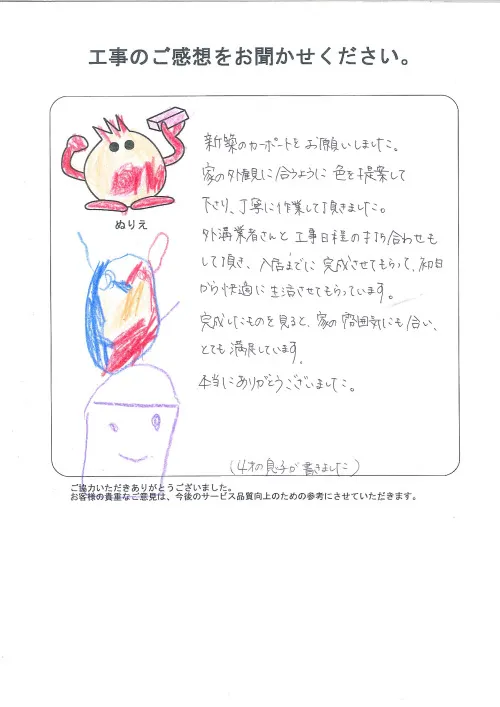 工事のご感想をお聞かせください。
新築のカーポートをお願いしました。
家の外観に合うように色を提案して
下さり、丁寧に作業して頂きました。
外溝業者さんと工事日程の打ち合わせも
して頂き、入居までに完成させてもらって、初日
から快適に生活させてもらっています。
完成したものを見ると、家の雰囲気にも合い、
とても満足しています。
本当にありがとうございました。
ぬりえ
(4才の息子が書きました)
ご協力いただきありがとうございました。
お客様の貴重なご意見は、今後のサービス品質向上のための参考にさせていただきます。